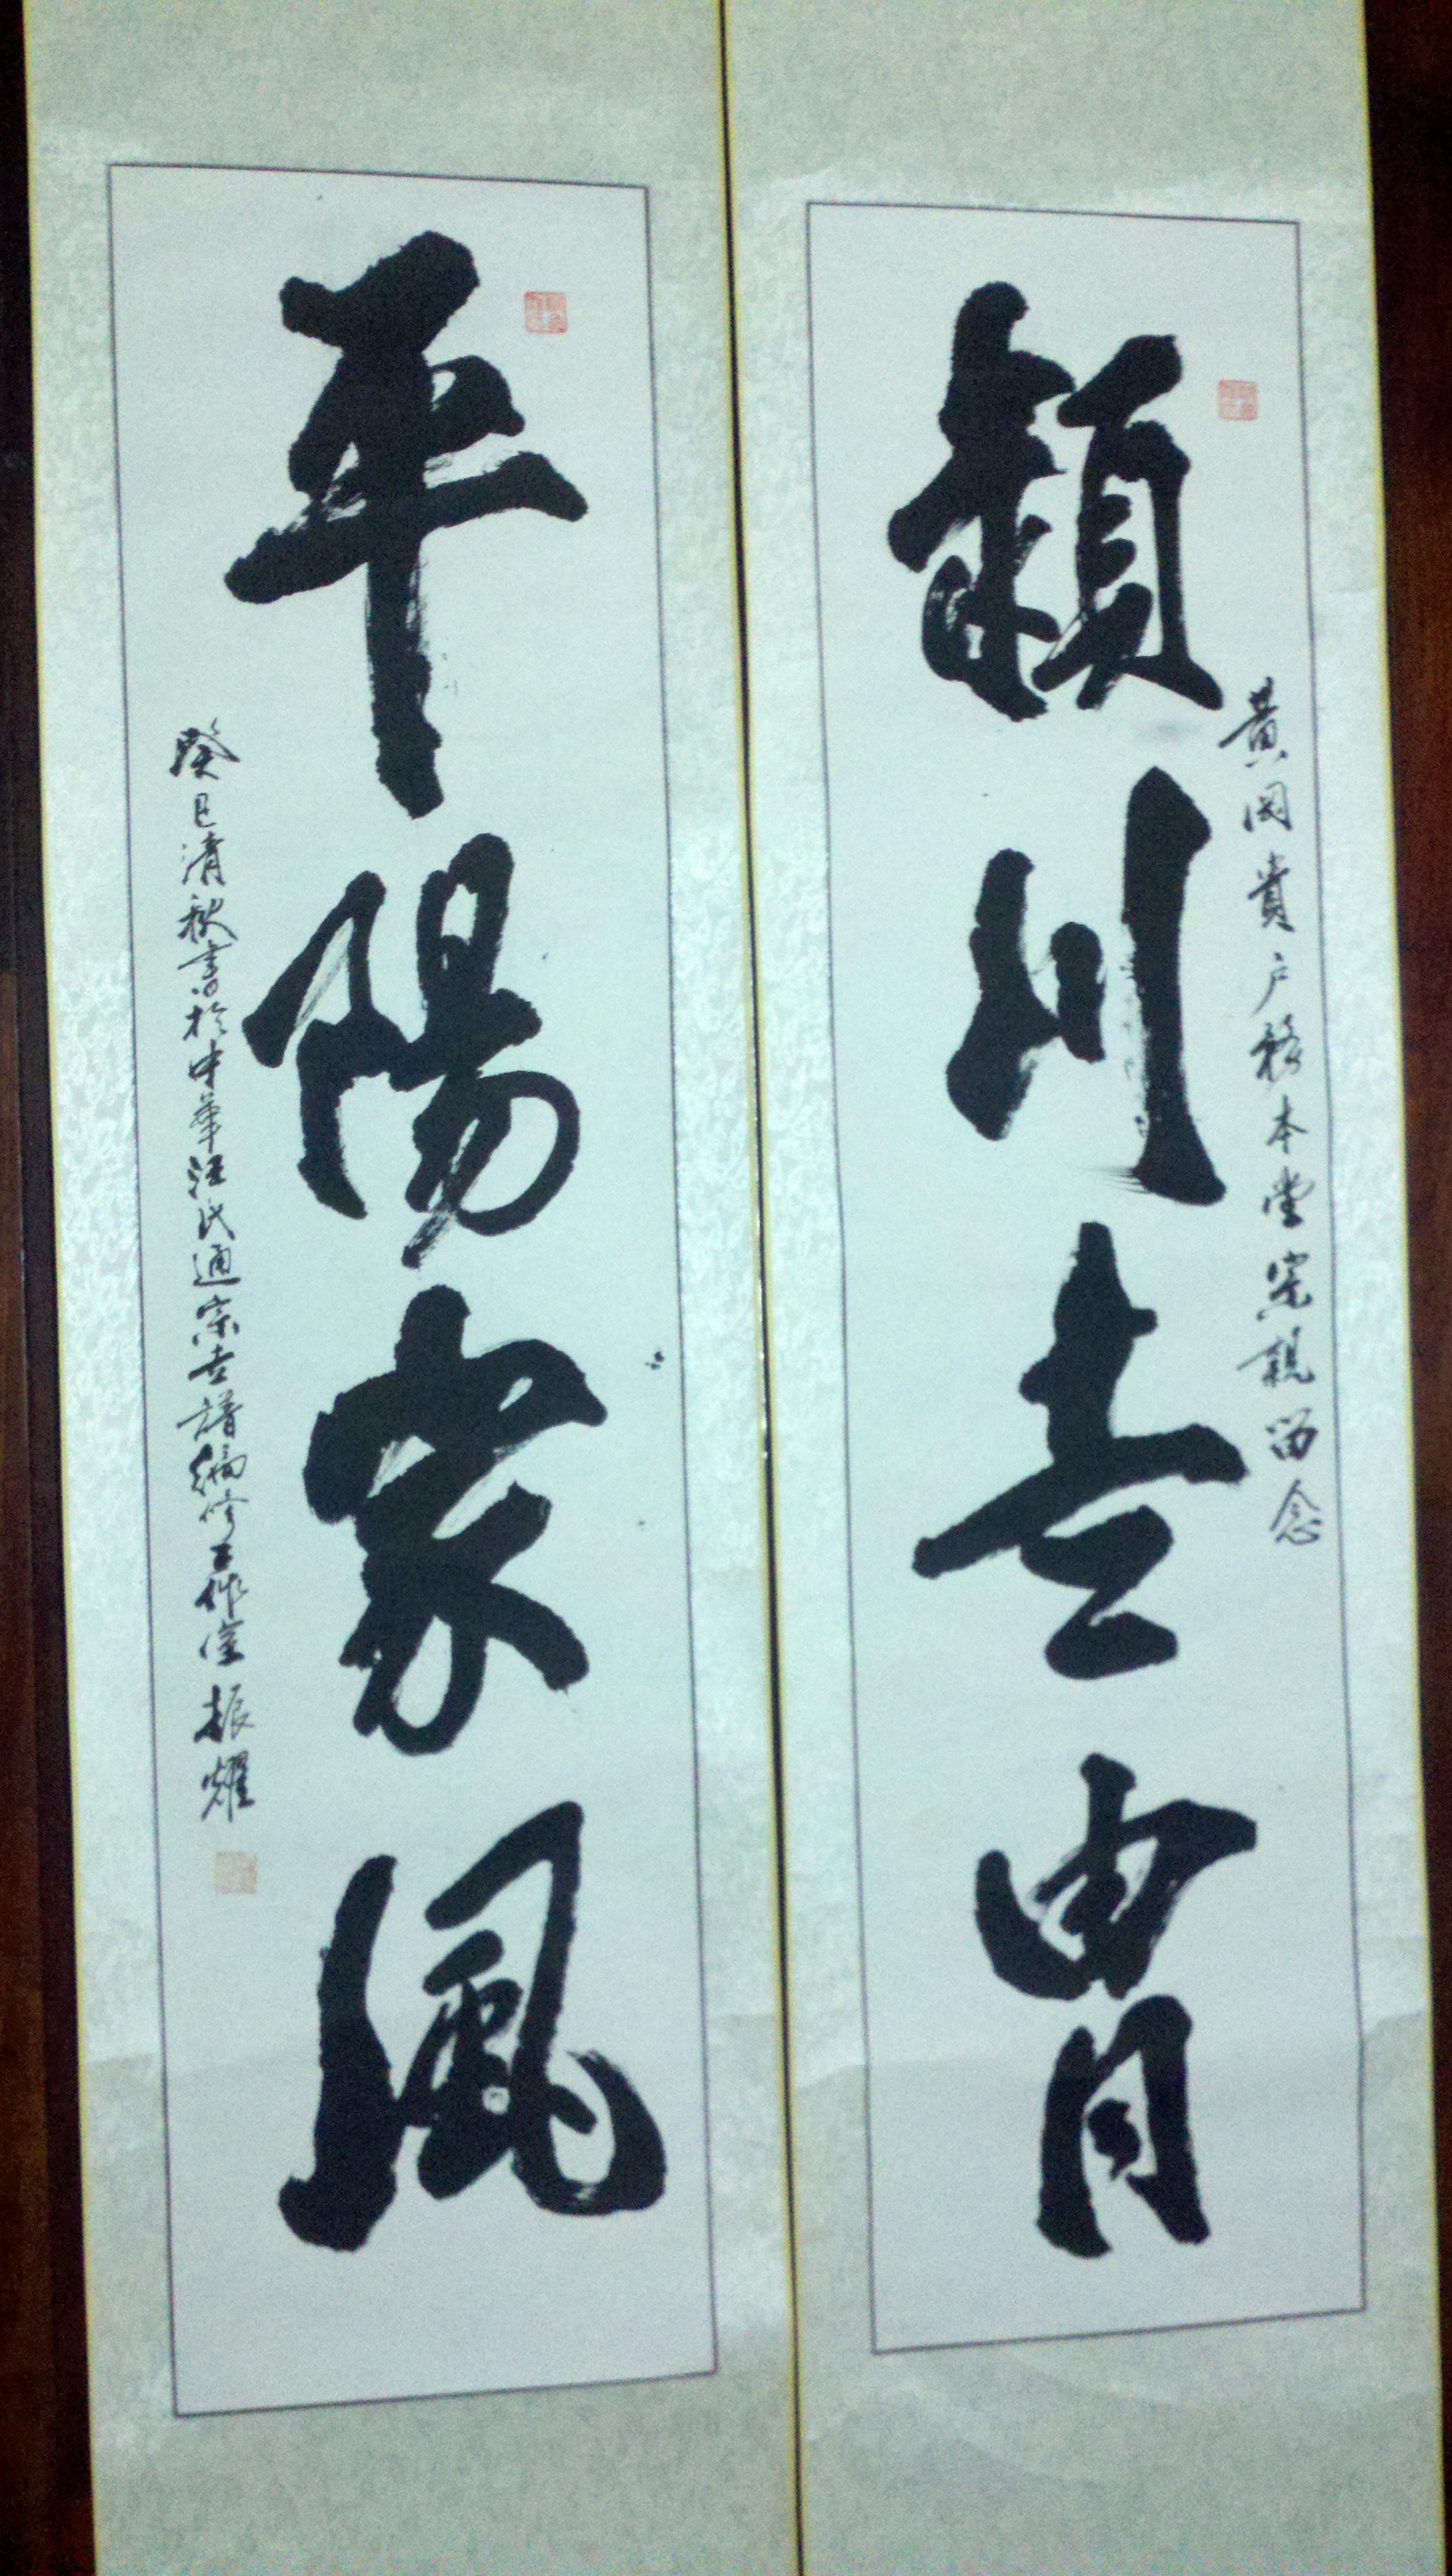 潁川世胄
黃岡貴戶務本堂宗親留念
平陽家風
癸巳清秋書於中華汪氏通宗世譜編修工作室 振耀